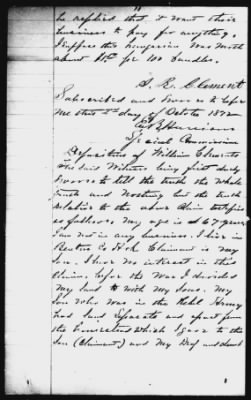 he replied that it want their
business to pay for anything.
I suppose this Longerine was worth
about $1 00 for 100 bundles.
S. R. Clement
Subscribed and sworn to before
me this 2nd day of October 1872
Special Commissioner
Deposition of William Edwards
who said Witness being first duly
sworn to tell the truth the whole
truth and nothing but the truth
relative to the above claim testifies
as follows. My age is 67 years
I am not in any business. I live in
Claimant is my
Son. I have no interest in this
claim. before the War I divided
my land with my Sons. My
Son who was in the Rebel Army
had land separate and apart from
the which I gave to the
Son (Claimant) and My Deaf and dumb